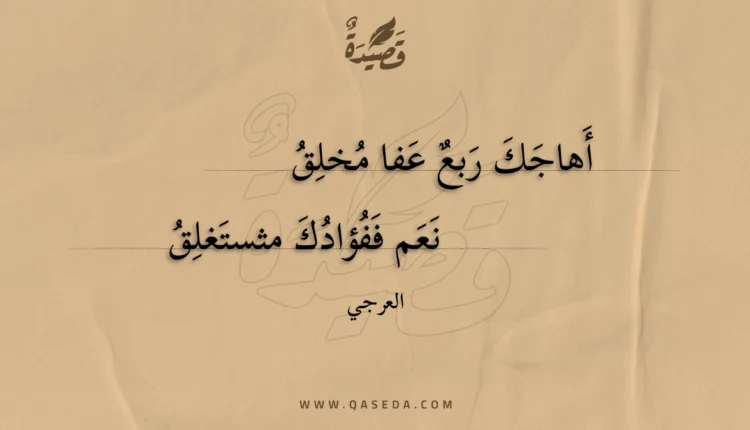 قَصِيْدَةٌ
أَهاجَكَ رَبعٌ عَفا مُخلِقُ
نَعَم فَفُؤادُكَ مثستَغلِقُ
العرجي
WWW.QASEDA.COM